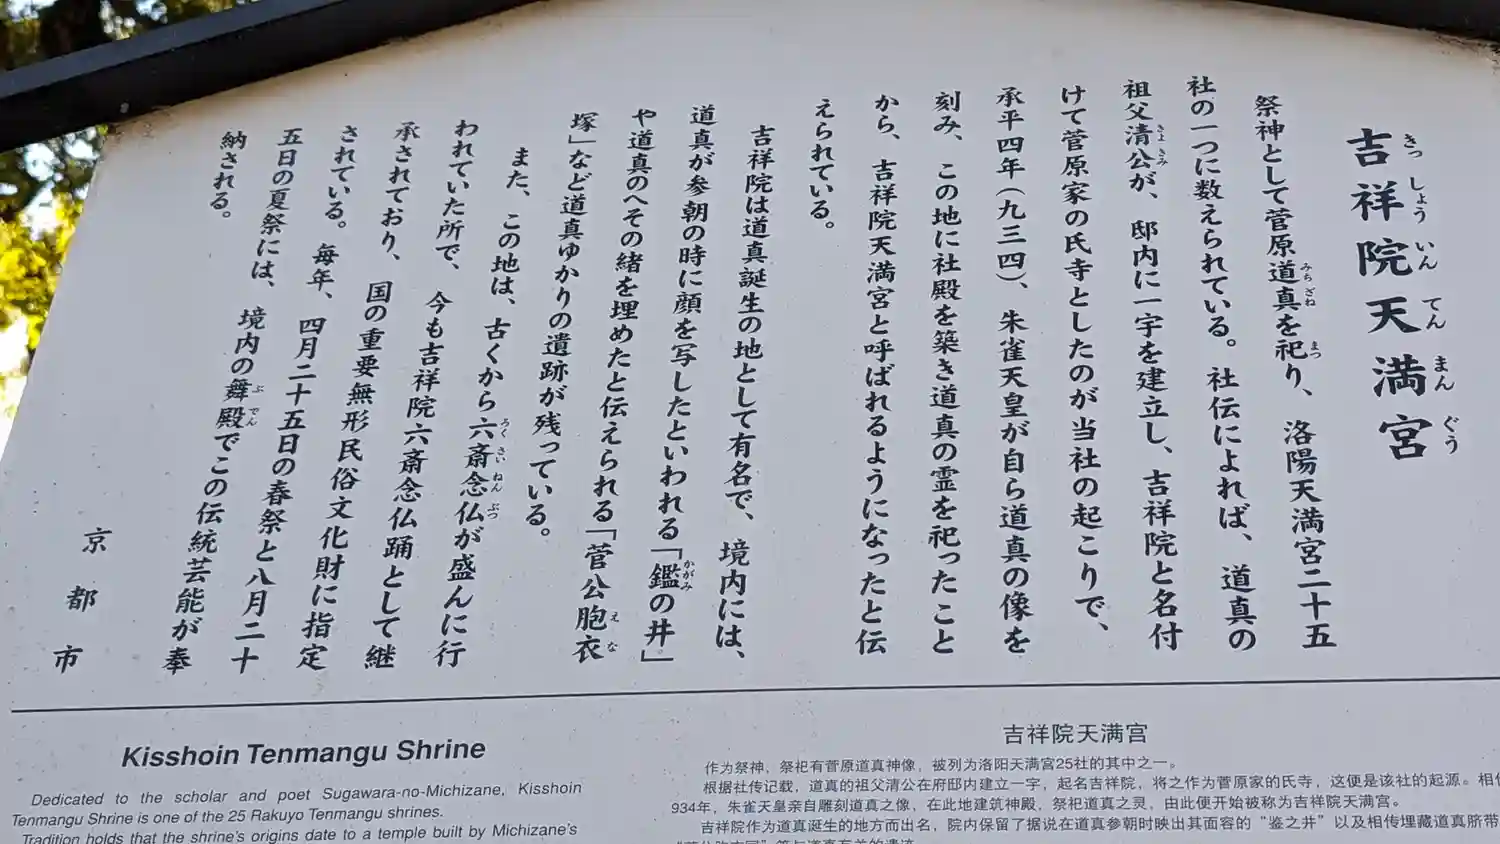 吉祥院天満宮
きっしょういんてんまんぐう
祭神として菅原道真を祀り、洛陽天満宮二十五
みちざね
まつ
社の一つに数えられている。社伝によれば、道真の
祖父清公が、邸内に一宇を建立し、吉祥院と名付
きよきみ
けて菅原家の氏寺としたのが当社の起こりで、
承平四年(九三四)、朱雀天皇が自ら道真の像を
刻み、この地に社殿を築き道真の霊を祀ったこと
から、吉祥院天満宮と呼ばれるようになったと伝
えられている。
吉祥院は道真誕生の地として有名で、境内には、
道真が参朝の時に顔を写したといわれる「鑑の井」
かがみ
や道真のへその緒を埋めたと伝えられる「菅公胞衣
えな
塚」など道真ゆかりの遺跡が残っている。
また、この地は、古くから六斎念仏が盛んに行
ろくさいねんぶつ
われていた所で、今も吉祥院六斎念仏踊として継
承されており、国の重要無形民俗文化財に指定
されている。毎年、四月二十五日の春祭と八月二十
五日の夏祭には、境内の舞殿でこの伝統芸能が奉
ぶでん
納される。
京都市
Kisshoin Tenmangu Shrine
Dedicated to the scholar and poet Sugawara-no-Michizane, Kisshoin
Tenmangu Shrine is one of the 25 Rakuyo Tenmangu shrines.
Tradition holds that the shrine's origins date to a temple built by Michizane's
吉祥院天满宫
作为祭神，祭祀有菅原道真神像，被列为洛阳天满宫25社的其中之一。
根据社传记载，道真的祖父清公在府邸内建立一宇，起名吉祥院，将之作为菅原家的氏寺，这便是该社的起源。相传
934年，朱雀天皇亲自雕刻道真之像，在此地建筑神殿，祭祀道真之灵，由此便开始被称为吉祥院天满宫。
吉祥院作为道真诞生的地方而出名，院内保留了据说在道真参朝时映出其面容的“鉴之井”以及相传埋藏道真脐带